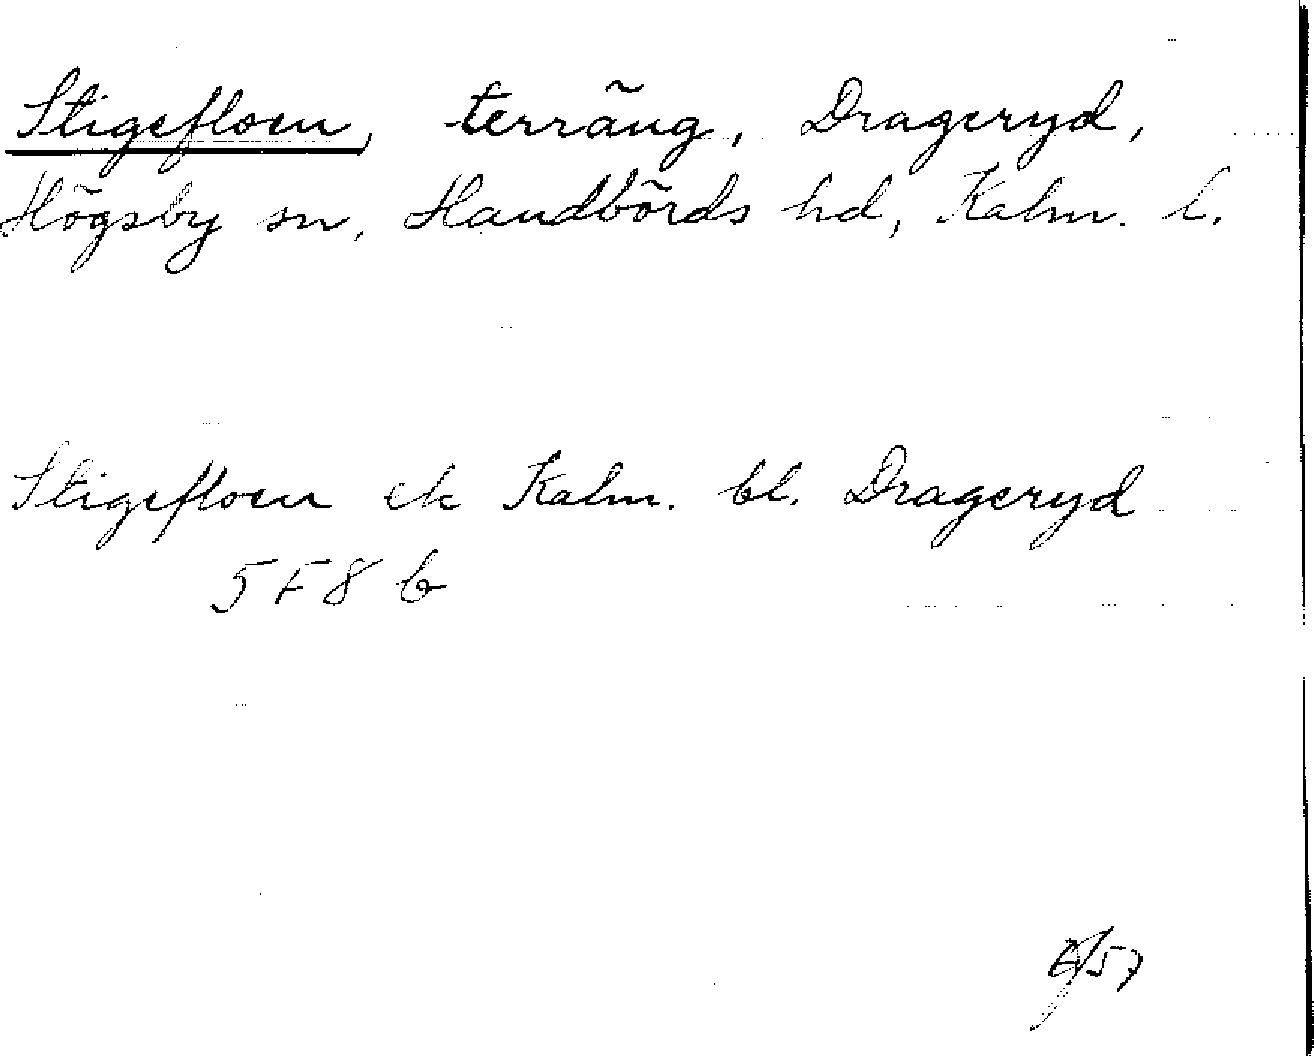 Stigefloen, terräng, Drageryd,
Högsby sn, Handbörds hd, Kalm. l.
Stigefloen ek Kalm. bl. Drageryd
5 F 8 b
57